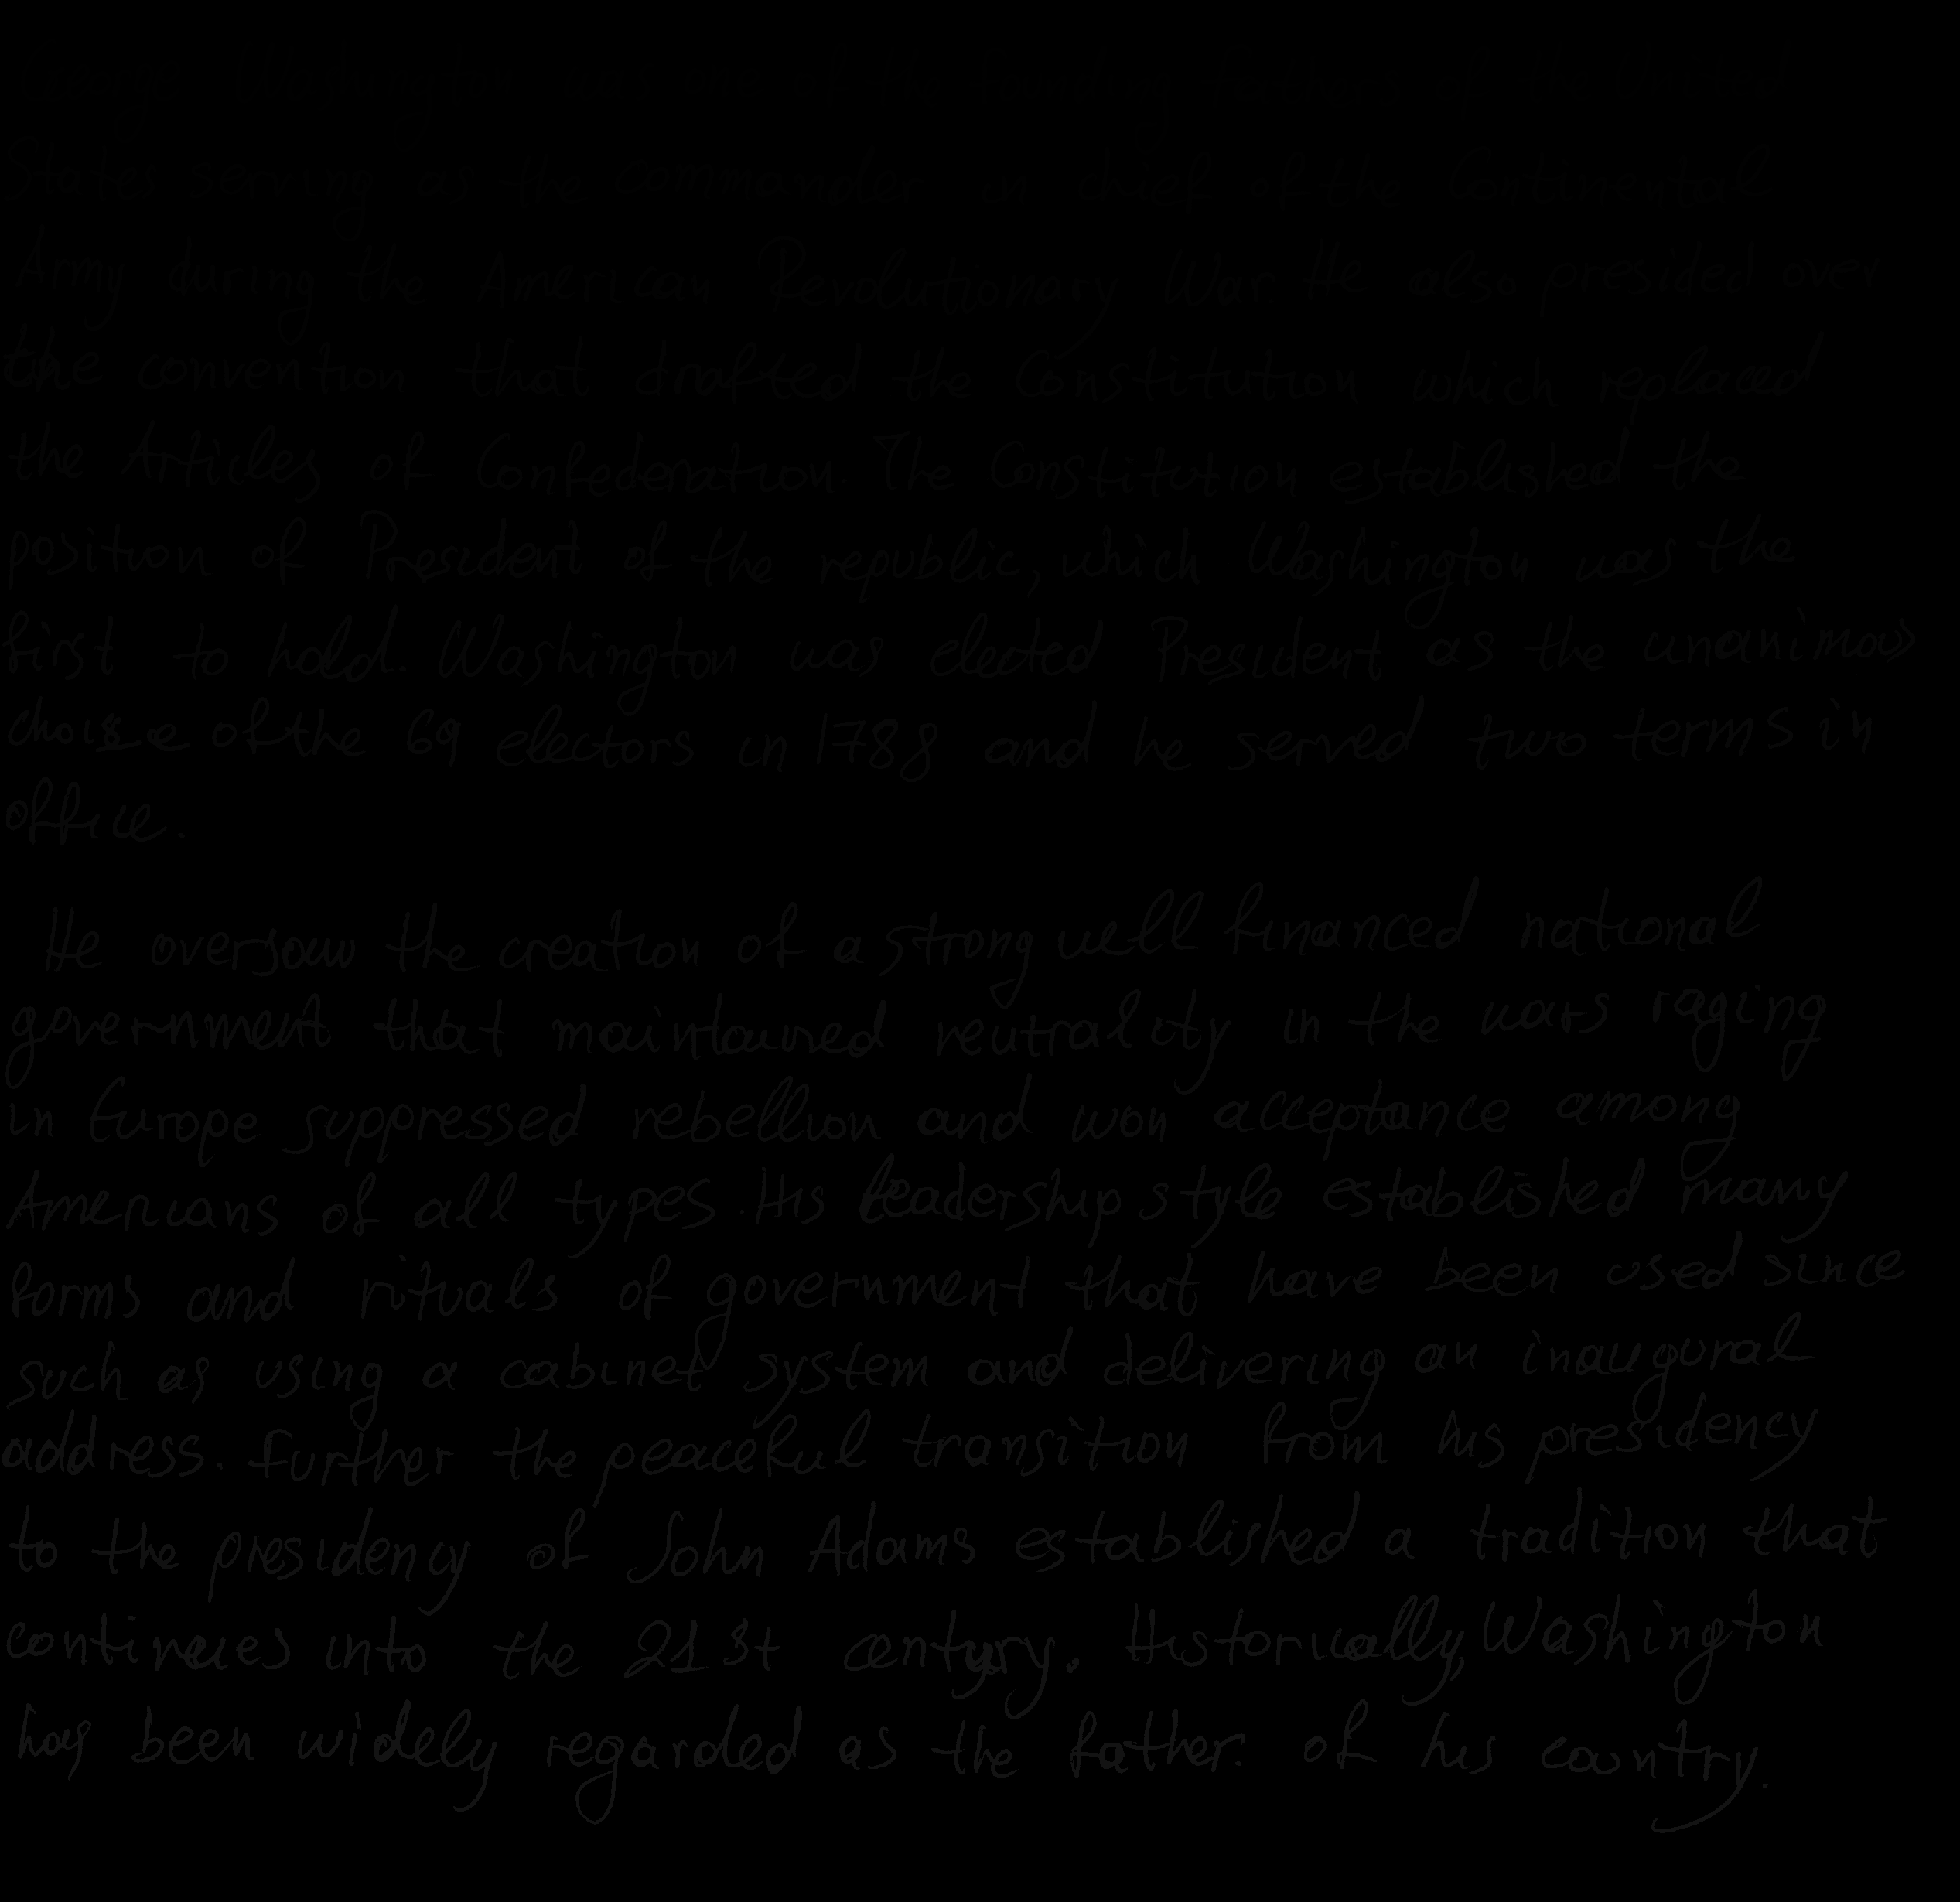 George Washington was one of the Founding Fathers of the United
States serving as the commander in chief of the Continental
Army during the American Revolutionary War. He also presided over
the convention that drafted the Constitution which replaced
the Articles of Confederation. The Constitution established the
position of President of the republic, which Washington was the
first to hold. Washington was elected President as the unanimous
choise of the 69 electors in 1788 and he served two terms in
office.
He oversaw the creation of a strong well financed national
government that maintained neutrality in the wars raging
in Europe suppressed rebellion and won acceptance among
Americans of all types. His leadership style established many
forms and rituals of government that have been used since
such as using a cabinet system and delivering an inaugural
address. Further the peaceful transition from his presidency
to the presidency of John Adams established a tradition that
continues into the 21st century. Historically, Washington
has been widely regarded as the father of his country.